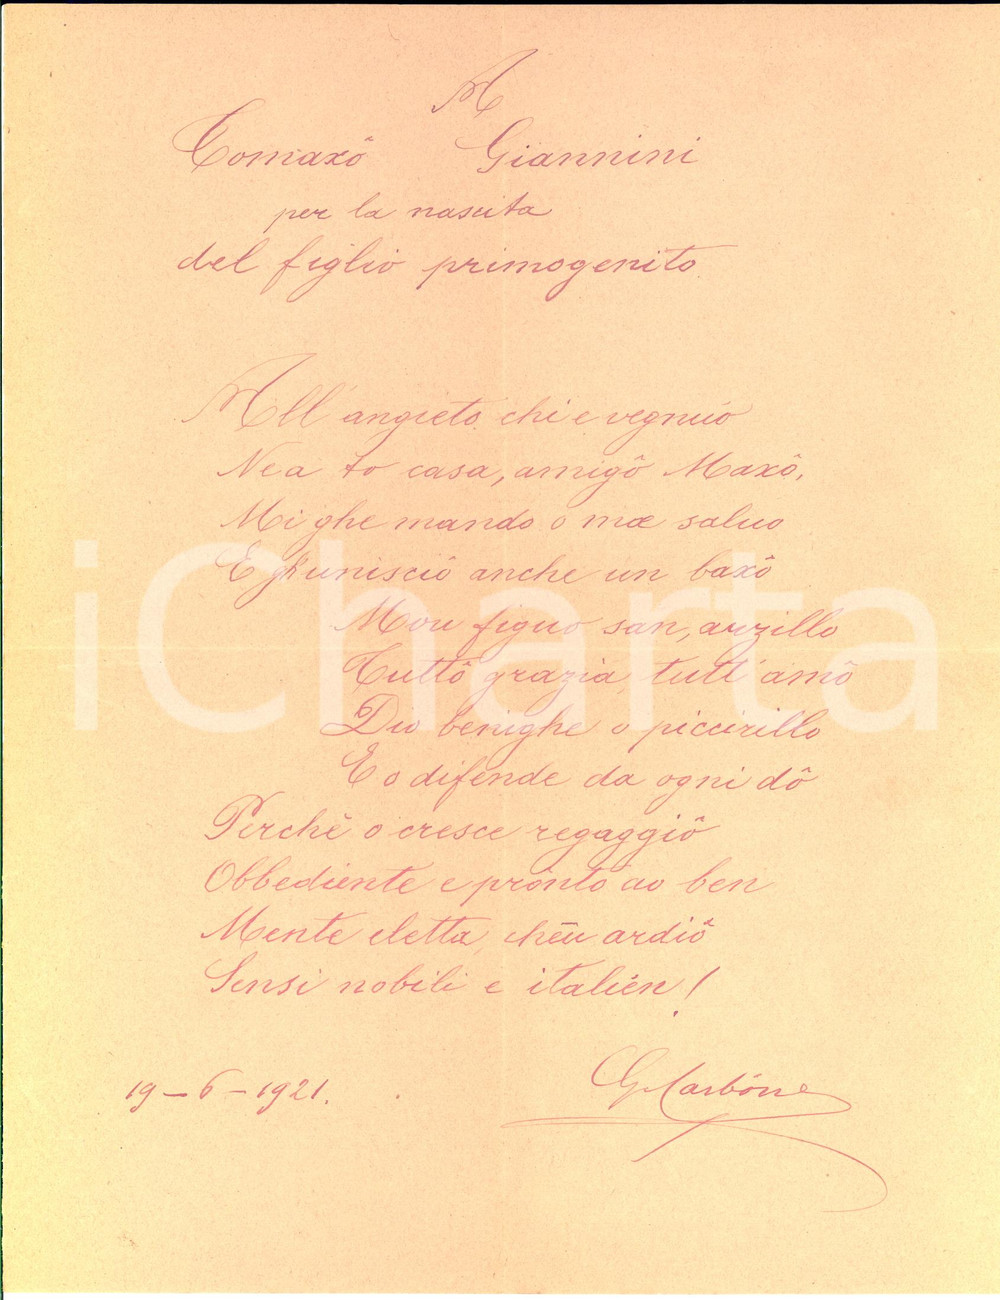 A
Tomaxô Giannini
per la nascita
del figlio primogenito
All'angieto chi e vegnúo
Ne a to casa, amigô Maxô,
Mi ghe mando o mæ saluo
E gh'unisciô anche un baxô
Mou figuo san, arzillo
Tuttô grazia, tutt'amô
Dio benighe o piccirillo
E o difende da ogni dô
Perchè o cresce regaggiô
Obbediente e pronto ao ben
Mente eletta, chêu ardiô
Sensi nobili e italién!
19-6-1921.
G Carbóne
iCharta